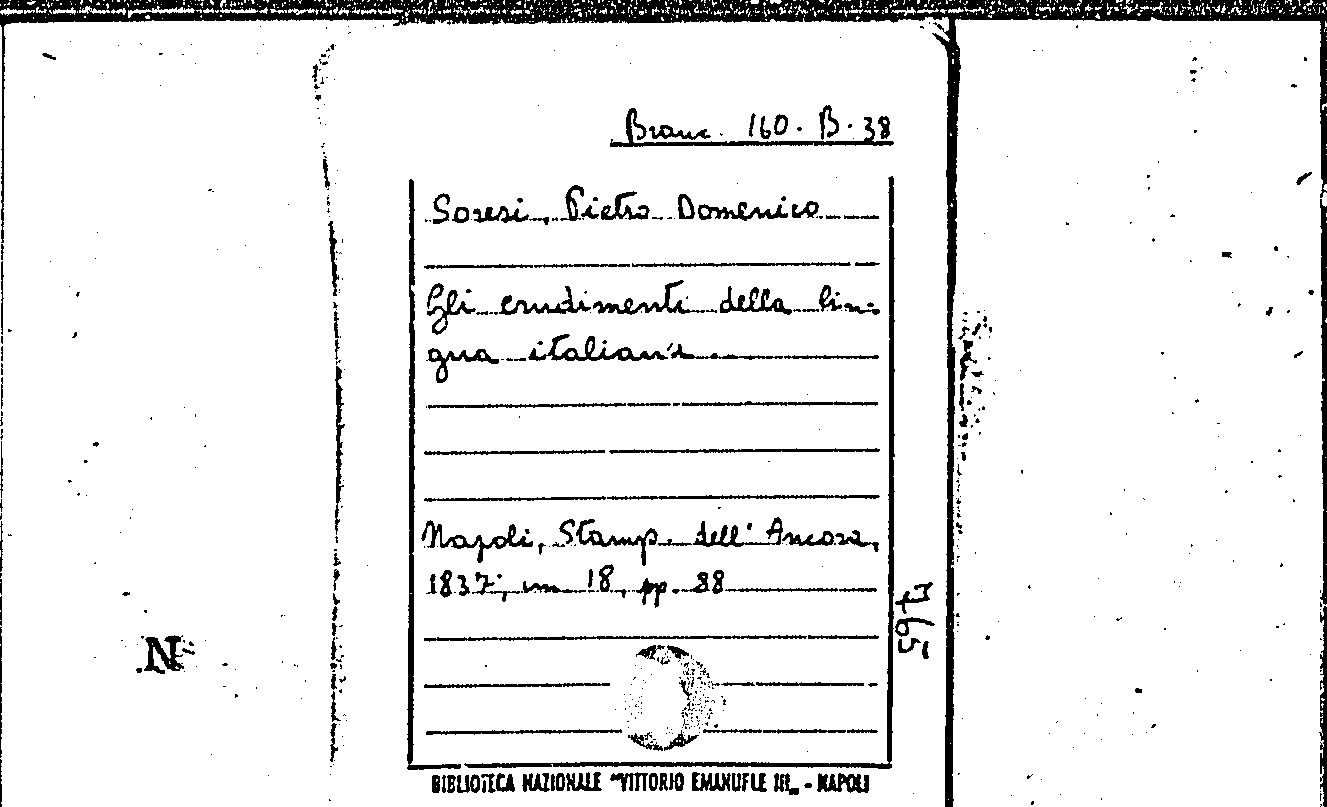 Branc. 160. B. 38
Soresi, Pietro Domenico
Gli erudimenti della lin=
gua italiana.
Napoli, Stamp. dell' Ancora,
1837; in 18, pp. 88
7965
N
BIBLIOTECA NAZIONALE "VITTORIO EMANUELE III„ - NAPOLI